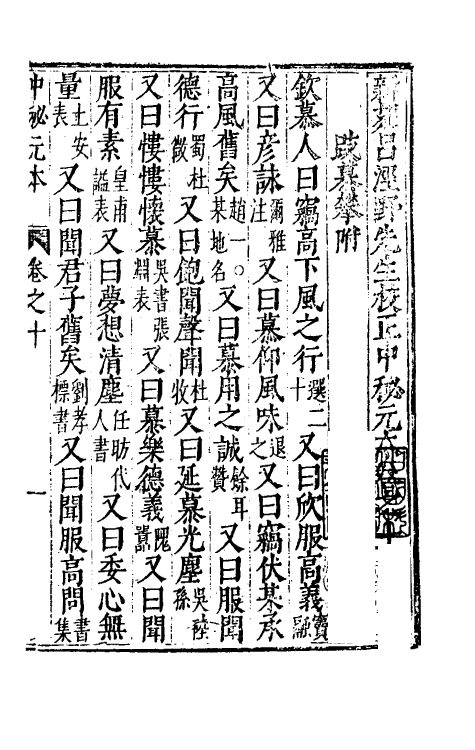 新刊呂涇野先生校正中秘元本
疏慕攀附
欽慕人曰竊高下風之行選二十又曰欣服高義竇融
又曰彥詠爾雅注又曰慕仰風味退之又曰竊伏某承
高風舊矣趙一○某地名又曰慕用之誠餘耳贊又曰服聞
德行蜀杜微又曰飽聞聲聞杜牧又曰延慕光塵吳陸孫
又曰慺慺懷慕吳書張淵表又曰慕樂德義隗囂又曰聞
服有素皇甫謐表又曰夢想清塵任昉代人書又曰委心無
量士安表又曰聞君子舊矣劉孝標書又曰聞服高問書集
中秘元本 卷之十 一